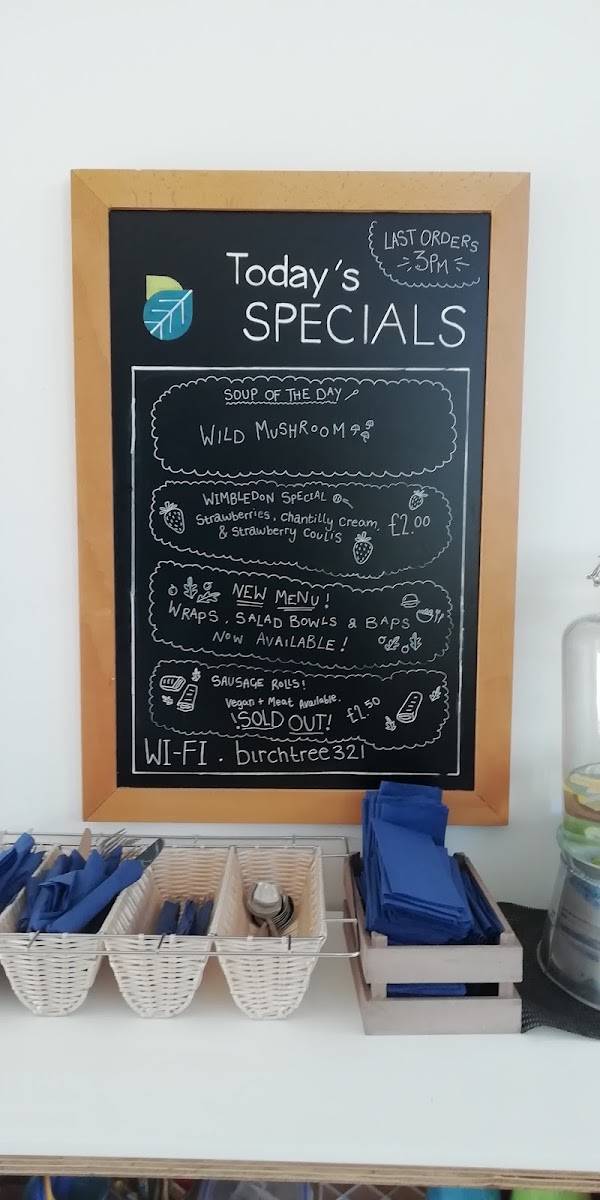 LAST ORDERS
3PM
Today's
SPECIALS
SOUP OF THE DAY
WILD MUSHROOM
WIMBLEDON SPECIAL
Strawberries, Chantilly Cream,
& Strawberry Coulis
£2.00
NEW MENU!
WRAPS, SALAD BOWLS & BAPS
NOW AVAILABLE!
SAUSAGE ROLLS!
Vegan + Meat Available.
!SOLD OUT!
£2.50
WI-FI . birchtree321